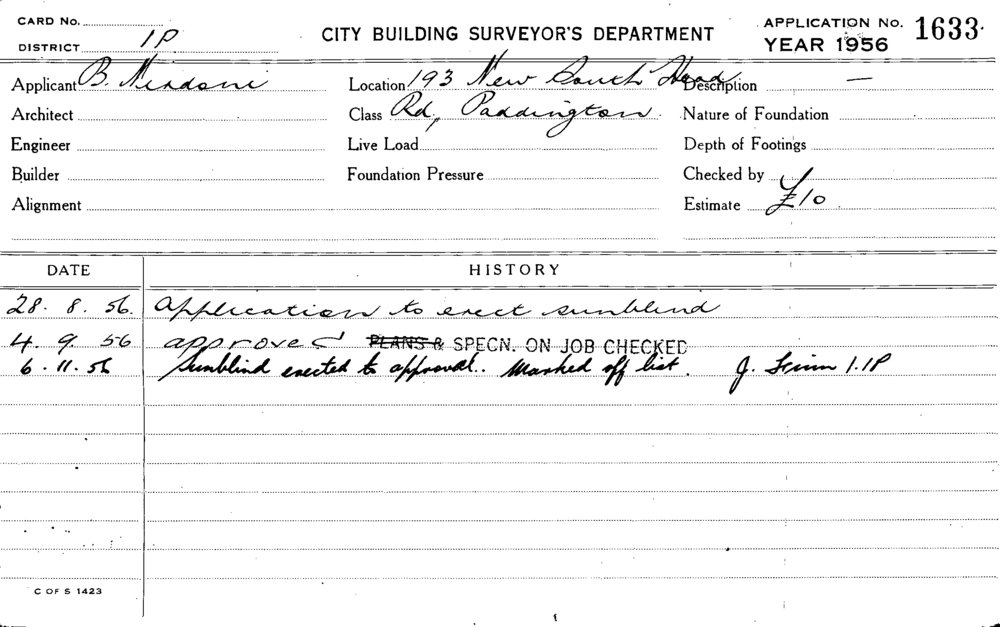 CARD No.
DISTRICT 1P
CITY BUILDING SURVEYOR'S DEPARTMENT
APPLICATION No. 1633
YEAR 1956
Applicant B.
Location 193 New South Head
Description —
Architect
Class Rd, Paddington
Nature of Foundation
Engineer
Live Load
Depth of Footings
Builder
Foundation Pressure
Checked by
Alignment
Estimate £10
DATE HISTORY
28. 8. 56. Application to erect sunblind
4. 9. 56 approved PLANS & SPECN. ON JOB CHECKED
6. 11. 56 Sunblind erected to approval. Marked off list. J. 1.1P
C OF S 1423